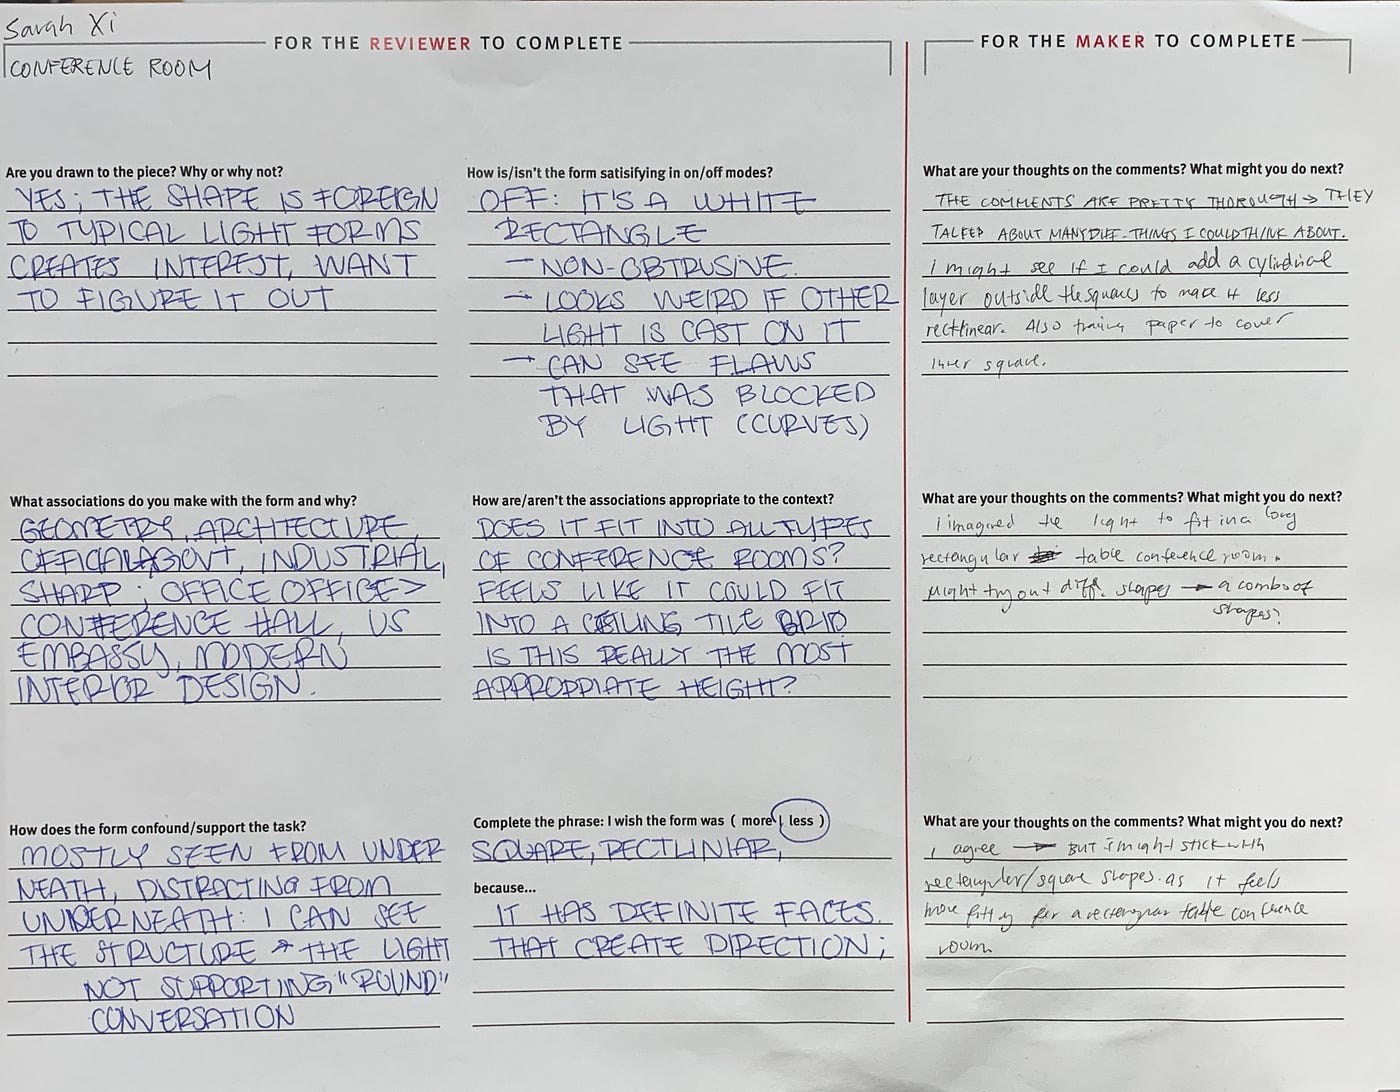 Sarah Xi
FOR THE REVIEWER TO COMPLETE
CONFERENCE ROOM
Are you drawn to the piece? Why or why not?
YES; THE SHAPE IS FOREIGN
TO TYPICAL LIGHT FORMS
CREATES INTEREST, WANT
TO FIGURE IT OUT
How is/isn't the form satisifying in on/off modes?
OFF: IT'S A WHITE
RECTANGLE
- NON-OBTRUSIVE.
- LOOKS WEIRD IF OTHER
LIGHT IS CAST ON IT
- CAN SEE FLAWS
THAT WAS BLOCKED
BY LIGHT (CURVES)
What associations do you make with the form and why?
GEOMETRY, ARCHITECTURE,
OFFICAL, GOVT, INDUSTRIAL,
SHARP; OFFICE OFFICE >
CONFERENCE HALL, US
EMBASSY, MODERN
INTERIOR DESIGN.
How are/aren't the associations appropriate to the context?
DOES IT FIT INTO ALL TYPES
OF CONFERENCE ROOMS?
FEELS LIKE IT COULD FIT
INTO A CEILING TILE GRID
IS THIS REALLY THE MOST
APPROPRIATE HEIGHT?
How does the form confound/support the task?
MOSTLY SEEN FROM UNDER
NEATH, DISTRACTING FROM
UNDERNEATH: I CAN SEE
THE STRUCTURE → THE LIGHT
NOT SUPPORTING "ROUND"
CONVERSATION
Complete the phrase: I wish the form was ( more, less )
SQUARE, RECTLINIAR,
because...
IT HAS DEFINITE FACES.
THAT CREATE DIRECTION;
FOR THE MAKER TO COMPLETE
What are your thoughts on the comments? What might you do next?
THE COMMENTS ARE PRETTY THOROUGH → THEY
TALKED ABOUT MANY DIFF. THINGS I COULD THINK ABOUT.
I might see if I could add a cylindrical
layer outside the squares to make it less
rectlinear. Also tracing paper to cover
inner square.
What are your thoughts on the comments? What might you do next?
I imagined the light to fit in a long
rectangular table conference room.
Might try out diff. shapes → a combo of
shapes?
What are your thoughts on the comments? What might you do next?
I agree → BUT I might stick with
rectangular/square shapes as it feels
more fitting for a rectangular table conference
room